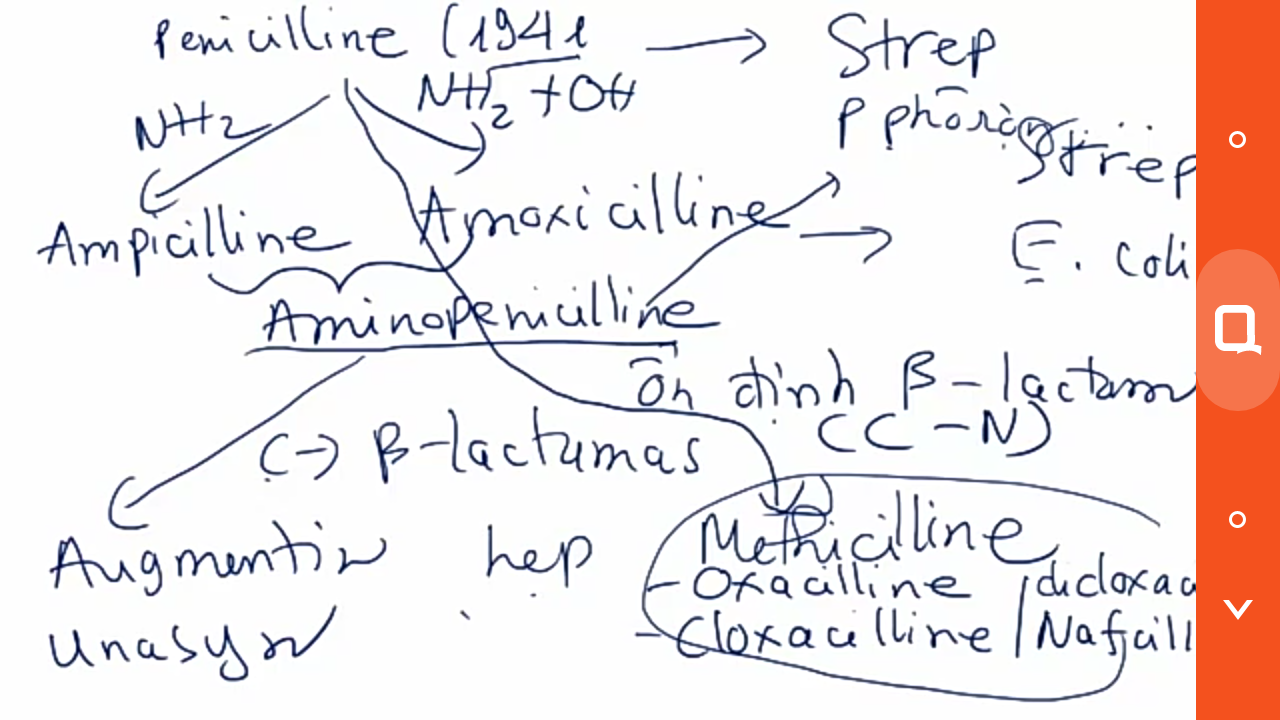 Penicilline (1941 → Strep
NH2 NH2 + OH
P phổ rộng Strep
Ampicilline Amoxicilline → E. coli
Aminopenicilline
Ổn định β-lactam
(C-N)
(-) β-lactamas
Methicilline
Augmentin hẹp
- Oxacilline / dicloxac
- Cloxacilline / Nafcill
Unasyn